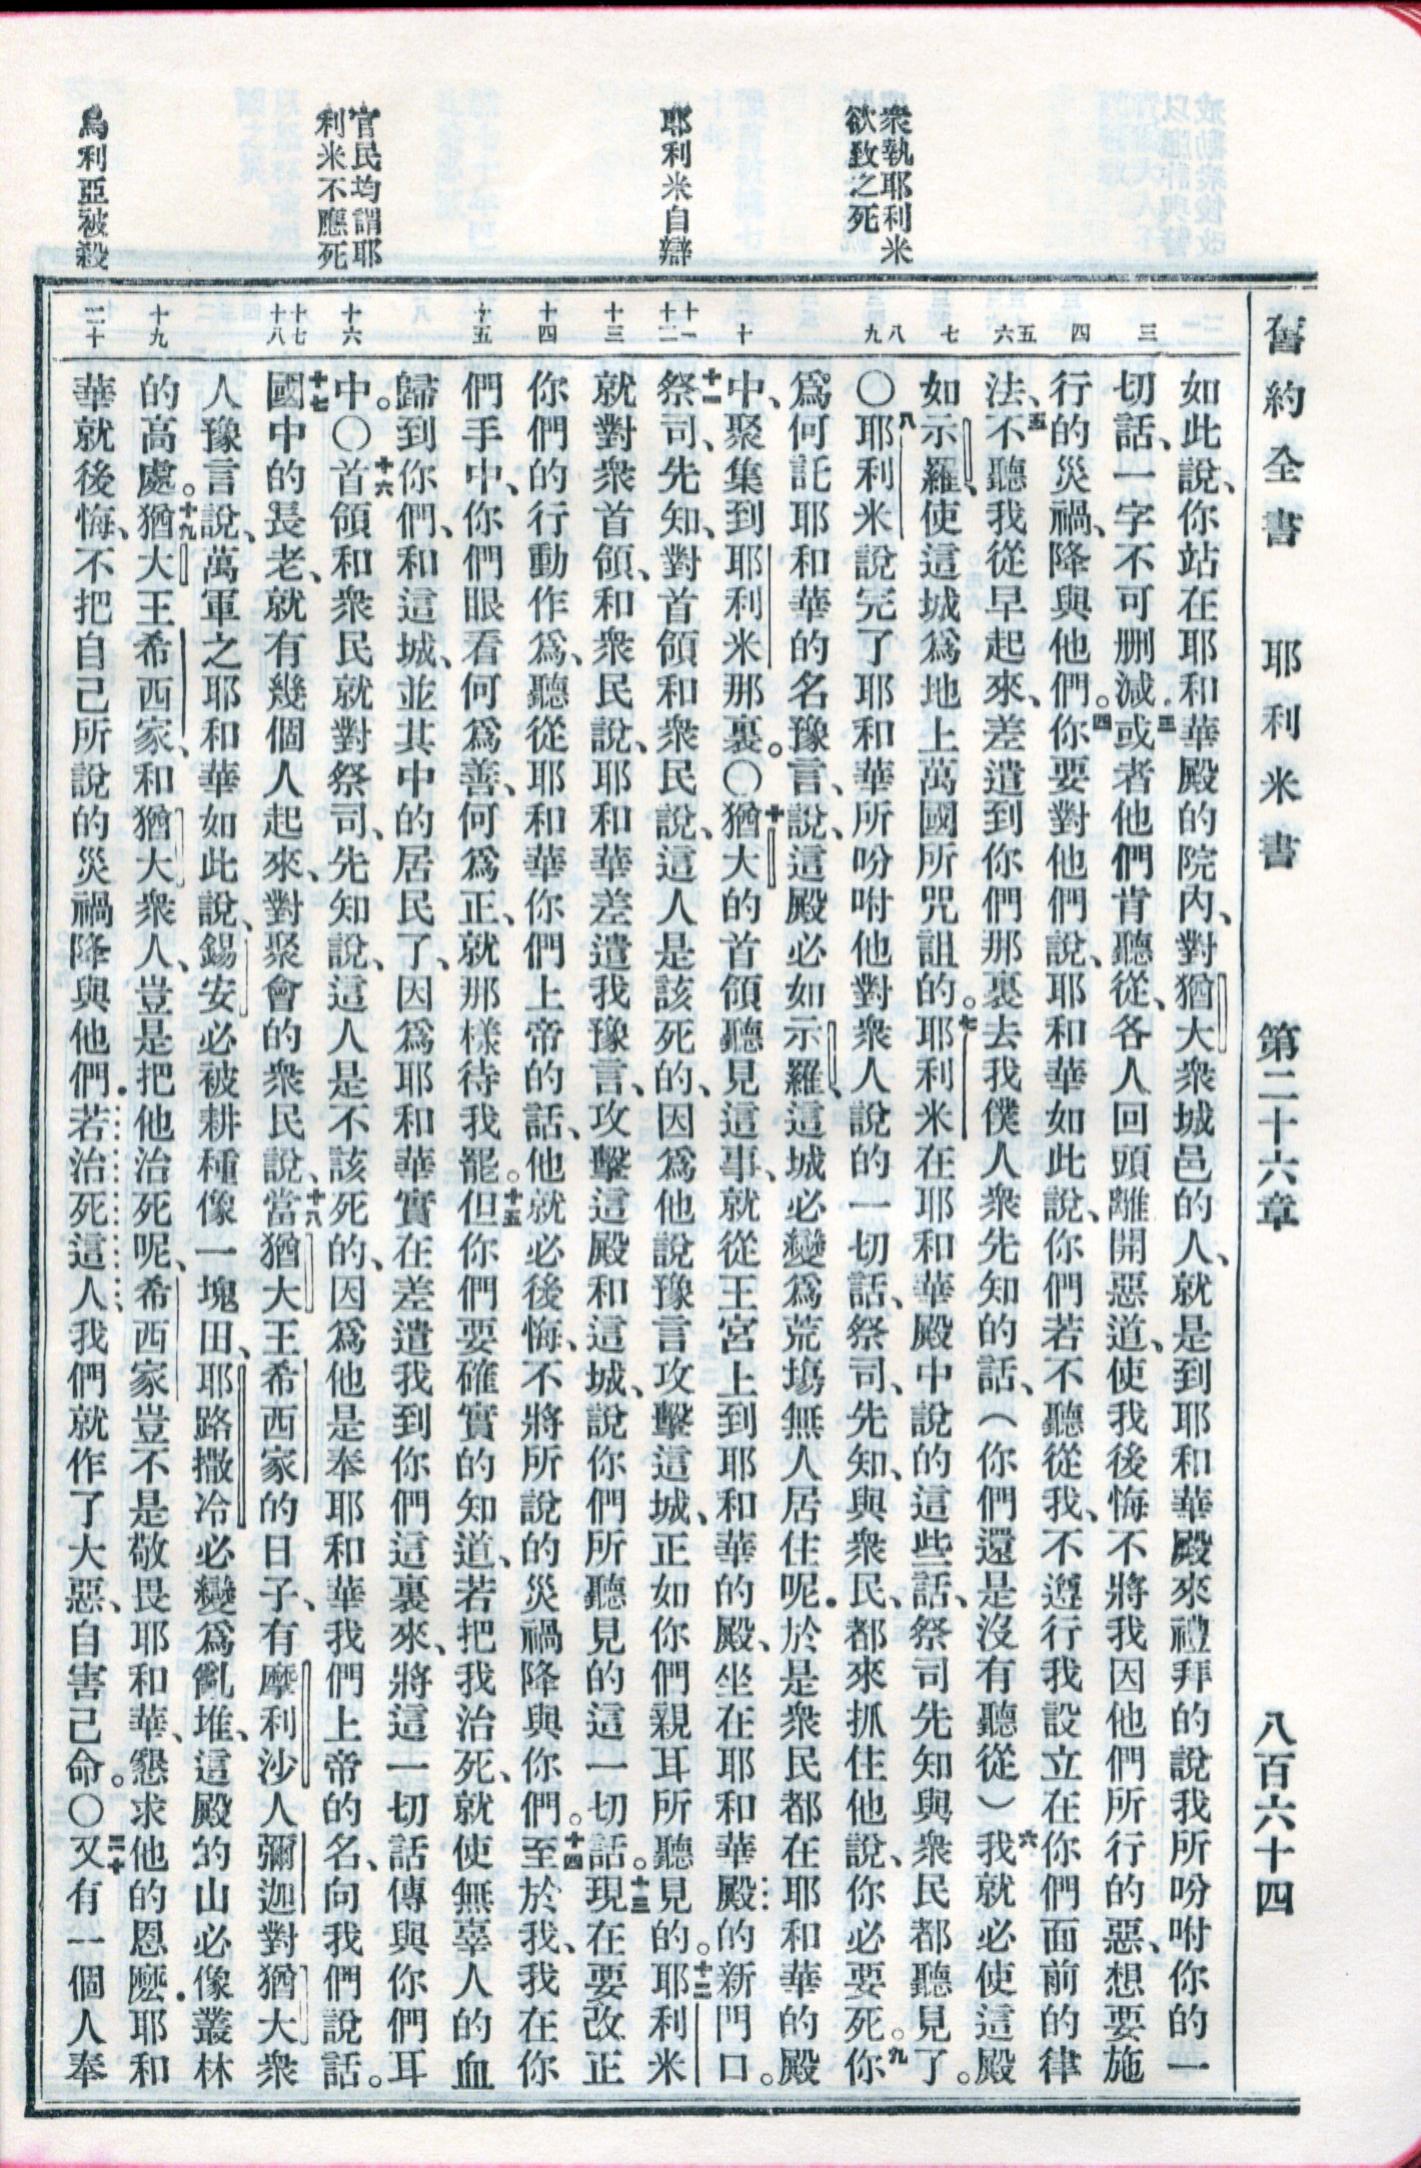 舊約全書 耶利米書 第二十六章 八百六十四
衆執耶利米
欲致之死
耶利米自辯
官民均謂耶
利米不應死
烏利亞被殺
三
四
五
六
七
八
九
十
十一
十二
十三
十四
十五
十六
十七
十八
十九
二十
如此說、你站在耶和華殿的院內、對猶大衆城邑的人、就是到耶和華殿來禮拜的說我所吩咐你的一
切話、一字不可刪減三或者他們肯聽從、各人回頭離開惡道、使我後悔不將我因他們所行的惡、想要施
行的災禍、降與他們。四你要對他們說、耶和華如此說、你們若不聽從我、不遵行我設立在你們面前的律
法、五不聽我從早起來、差遣到你們那裏去我僕人衆先知的話、（你們還是沒有聽從）六我就必使這殿
如示羅、使這城爲地上萬國所咒詛的。七耶利米在耶和華殿中說的這些話、祭司先知與衆民都聽見了。
〇八耶利米說完了耶和華所吩咐他對衆人說的一切話、祭司、先知、與衆民、都來抓住他說、你必要死。九你
爲何託耶和華的名豫言、說、這殿必如示羅、這城必變爲荒塲無人居住呢．於是衆民都在耶和華的殿
中、聚集到耶利米那裏。〇十猶大的首領聽見這事、就從王宮上到耶和華的殿、坐在耶和華殿的新門口。
十一祭司、先知、對首領和衆民說、這人是該死的、因爲他說豫言攻擊這城、正如你們親耳所聽見的。十二耶利米
就對衆首領、和衆民說、耶和華差遣我豫言、攻擊這殿和這城、說你們所聽見的這一切話。十三現在要改正
你們的行動作爲、聽從耶和華你們上帝的話、他就必後悔、不將所說的災禍降與你們。十四至於我、我在你
們手中、你們眼看何爲善、何爲正、就那樣待我罷。十五但你們要確實的知道、若把我治死、就使無辜人的血
歸到你們、和這城、並其中的居民了、因爲耶和華實在差遣我到你們這裏來、將這一切話傳與你們耳
中。〇十六首領和衆民就對祭司、先知說、這人是不該死的、因爲他是奉耶和華我們上帝的名、向我們說話。
十七國中的長老、就有幾個人起來、對聚會的衆民說、十八當猶大王希西家的日子、有摩利沙人彌迦對猶大衆
人豫言說、萬軍之耶和華如此說、錫安必被耕種像一塊田、耶路撒冷必變爲亂堆、這殿的山必像叢林
的高處。十九猶大王希西家、和猶大衆人、豈是把他治死呢、希西家豈不是敬畏耶和華、懇求他的恩麽．耶和
華就後悔、不把自己所說的災禍降與他們．若治死這人、我們就作了大惡、自害己命。〇二十又有一個人奉